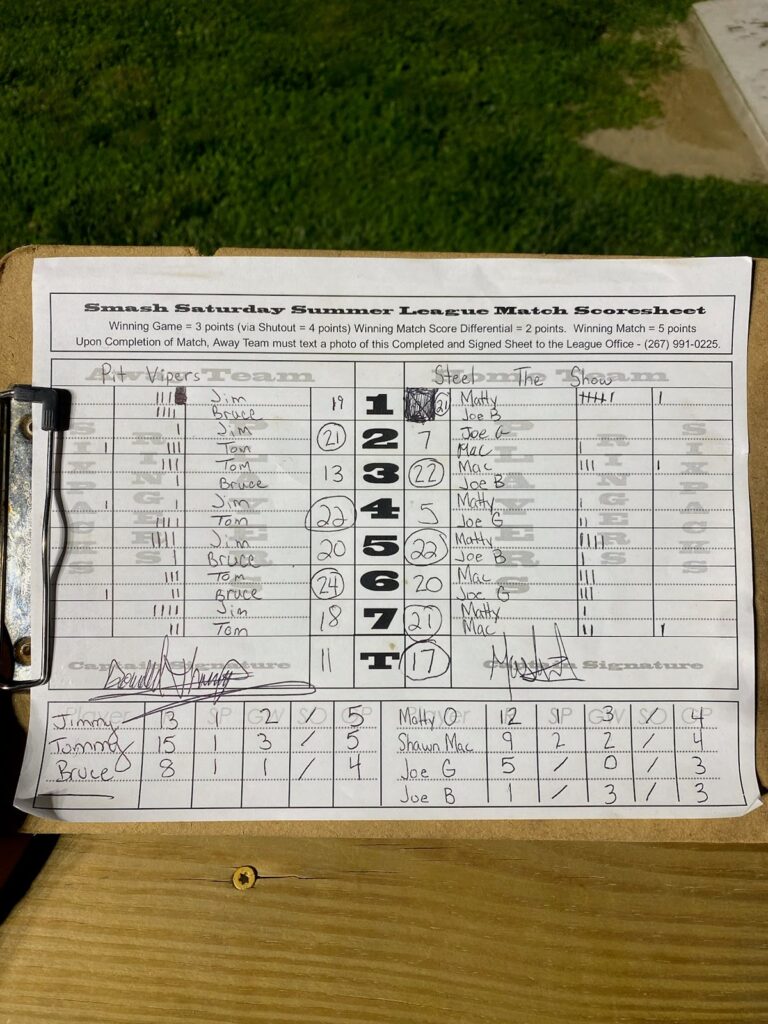 Smash Saturday Summer League Match Scoresheet
Winning Game = 3 points (via Shutout = 4 points) Winning Match Score Differential = 2 points. Winning Match = 5 points
Upon Completion of Match, Away Team must text a photo of this Completed and Signed Sheet to the League Office - (267) 991-0225.
Away Team Pit Vipers Home Team Steel The Show
Jim 19 1 21 Matty
Bruce Joe B
Jim 21 2 7 Joe G
Tom Mac
Tom 13 3 22 Mac
Bruce Joe B
Jim 22 4 5 Matty
Tom Joe G
Jim 20 5 22 Matty
Bruce Joe B
Tom 24 6 20 Mac
Bruce Joe G
Jim 18 7 21 Matty
Tom Mac
SIXPACKS RINGERS PLAYERS PLAYERS RINGERS SIXPACKS
Captain Signature 11 T 17 Captain Signature
Player SP GW SO GP Player SP GW SO GP
Jimmy 13 1 2 / 5 Matty O 12 1 3 / 4
Tommy 15 1 3 / 5 Shawn Mac 9 2 2 / 4
Bruce 8 1 1 / 4 Joe G 5 / 0 / 3
Joe B 1 / 3 / 3